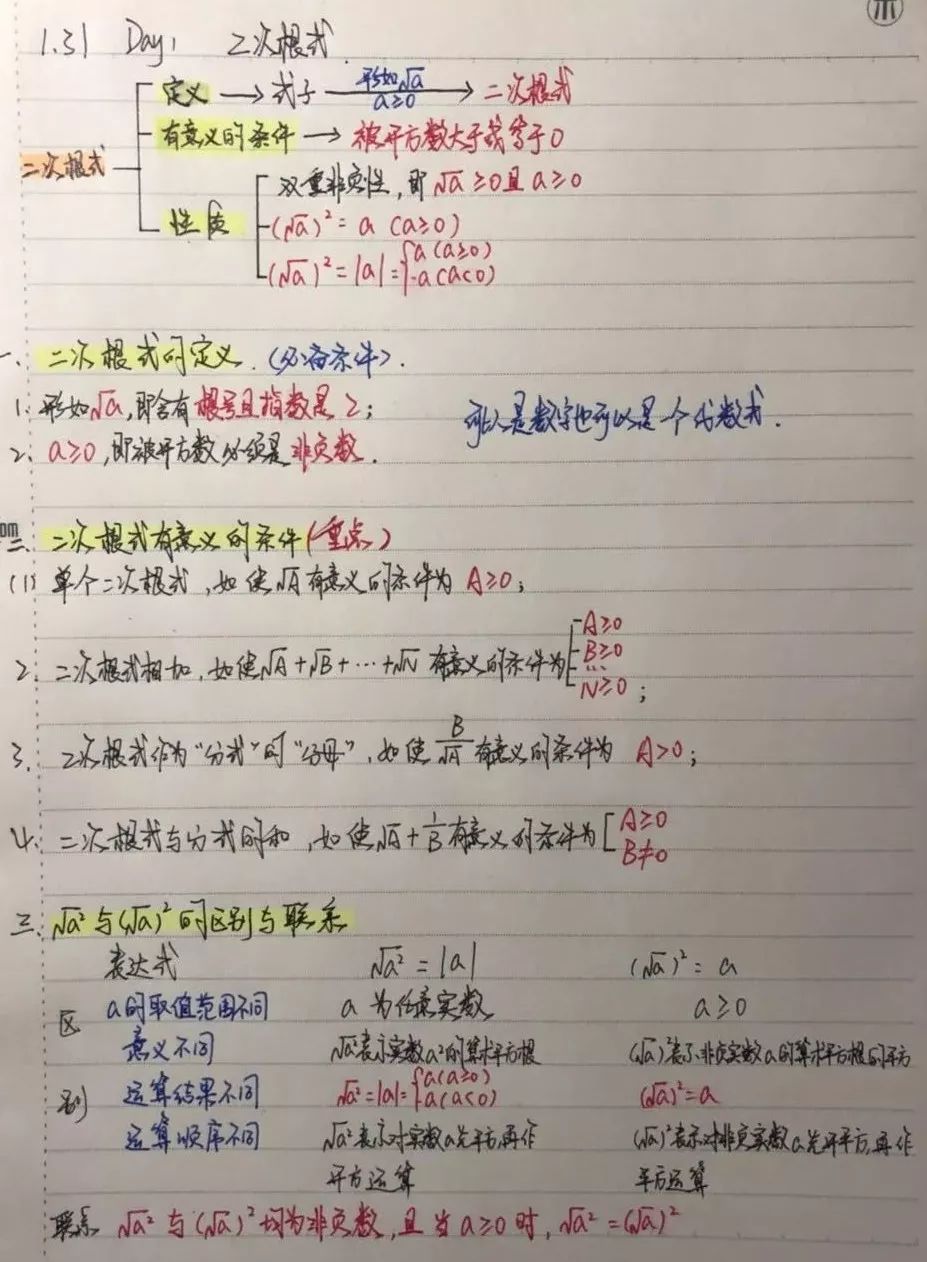 1.31 Day1 二次根式
定义 → 式子 —形如√a a≥0→ 二次根式
有意义的条件 → 被开方数大于或等于0
二次根式
双重非负性,即√a ≥0且 a≥0
性质 (√a)² = a (a≥0)
(√a)² = |a| = { a (a≥0)
-a (a<0)
一、二次根式的定义.(必备条件).
1. 形如√a,即含有根号且指数是2; 可以是数字也可以是一个代数式.
2. a≥0,即被开方数必须是非负数.
二、二次根式有意义的条件(重点)
(1) 单个二次根式,如使√A有意义的条件为 A≥0;
2. 二次根式相加,如使√A+√B+…+√N 有意义的条件为 [ A≥0
B≥0
…
N≥0 ;
3. 二次根式作为“分式”的“分母”,如使 B/√A 有意义的条件为 A>0;
4. 二次根式与分式的和,如使√A + 1/B 有意义的条件为 [ A≥0
B≠0
三、√a² 与(√a)² 的区别与联系
表达式 √a² = |a| (√a)² = a
区 a的取值范围不同 a 为任意实数 a≥0
意义不同 √a²表示实数a²的算术平方根 (√a)²表示非负实数a的算术平方根的平方
别 运算结果不同 √a² = |a| = { a (a≥0) (√a)² = a
-a (a<0)
运算顺序不同 √a²表示对实数a先平方,再作 (√a)²表示对非负实数a先开平方,再作
开方运算 平方运算
联系 √a² 与 (√a)² 均为非负数,且当 a≥0 时,√a² = (√a)²